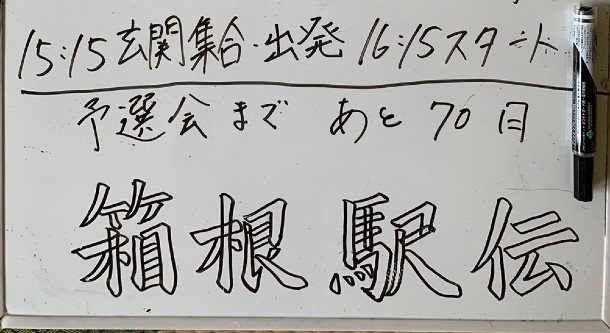 15:15玄関集合・出発 16:15スタート
予選会まで あと 70 日
箱根駅伝